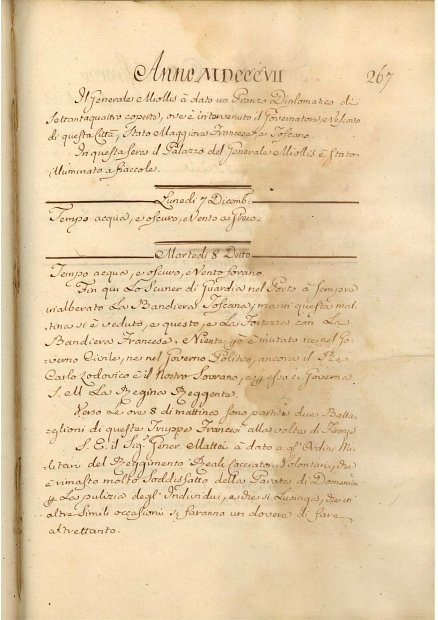 Anno MDCCCVII
267
Il Generale Miollis à dato un Pranzo Diplomatico di
Settantaquattro coperte, ov'è intervenuto il Governatore, e Vescovo
di questa Città, Stato Maggiore Francese, e Toscano.
In questa sera il Palazzo del Generale Miollis è stato
illuminato a fiaccole.
Lunedì 7 Dicemb.
Tempo acqua, e oscuro, e Vento a Greco.
Martedì 8 Detto
Tempo acqua, e oscuro, e Vento forano.
Fin qui Lo Scuner di Guardia nel Porto à sempre
inalberato La Bandiera Toscana; ma in questa mat-
tina si è veduto, e questo, e La Fortezza con La
Bandiera Francese. Niente però è mutato ne nel Go-
verno Civile, ne nel Governo Politico, ancora il Rè
Carlo Lodovico è il Nostro Sovrano, e p esso ci Governa
S. M. La Regina Reggente.
Verso Le ore 8 di mattina sono partiti due Batta-
glioni di queste Truppe Francesi alla volta di Firenze
S. E. il Sigr. Gener. Mattei à dato a gl' Ordini Mi-
litari del Reggimento Reali Cacciatori Volontari, che
è rimasto molto Soddisfatto della Parata di Domenica
p La pulizia degl' Individui, e che si Lusinga, che in
altre simili occasioni si faranno un dovere di fare
altrettanto.